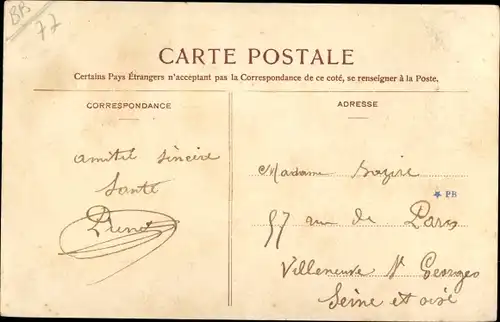 BB
77
CARTE POSTALE
Certains Pays Étrangers n'acceptant pas la Correspondance de ce coté, se renseigner à la Poste.
CORRESPONDANCE
ADRESSE
amitél sincère
Santé
Madame
* PB
57 rue de Paris
Villeneuve St Georges
Seine et oise